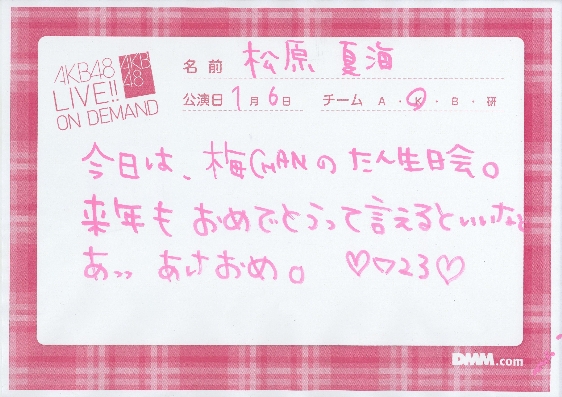 AKB48
LIVE!!
ON DEMAND
AKB
48
名前 松原 夏海
公演日 1月6日 チーム A・K・B・研
今日は、梅CHANのたん生日会。
来年もおめでとうって言えるといいなと
あっっ あけおめ。 ♡♡23♡
DMM.com